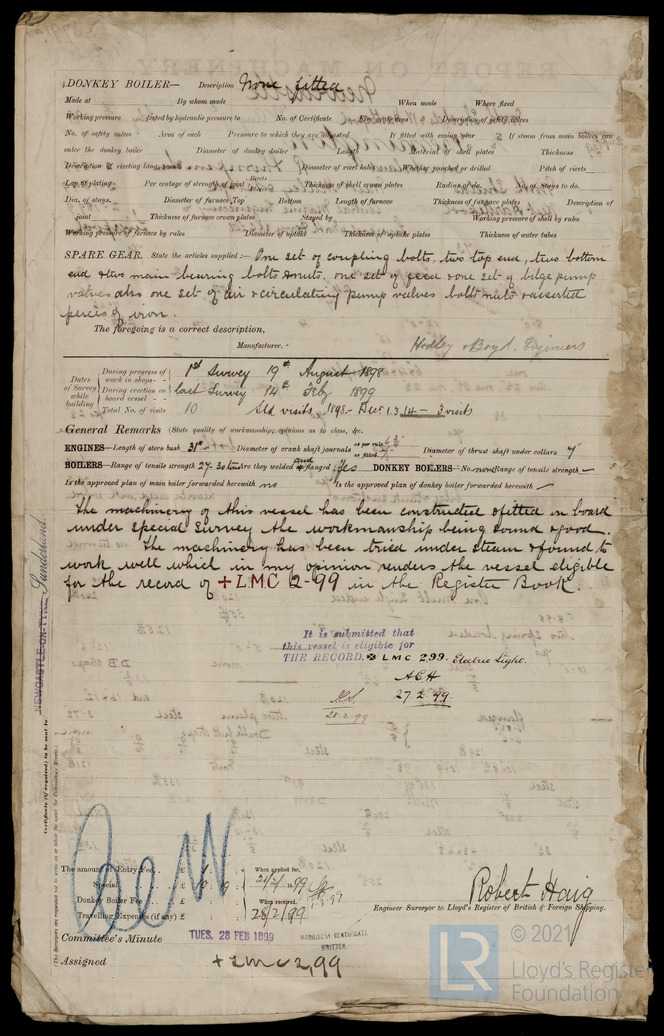 DONKEY BOILER— Description None fitted
Made at By whom made When made Where fixed
Working pressure tested by hydraulic pressure to No. of Certificate Fire grate area Description of safety valves
No. of safety valves Area of each Pressure to which they are adjusted If fitted with easing gear If steam from main boilers can
enter the donkey boiler Diameter of donkey boiler Length Material of shell plates Thickness
Description of riveting long. seams Diameter of rivet holes Whether punched or drilled Pitch of rivets
Lap of plating Per centage of strength of joint Rivets Thickness of shell crown plates Radius of do. No. of Stays to do.
Dia. of stays. Diameter of furnace Top Bottom Length of furnace Thickness of furnace plates Description of
joint Thickness of furnace crown plates Stayed by Working pressure of shell by rules
Working pressure of furnace by rules Diameter of uptake Thickness of uptake plates Thickness of water tubes
SPARE GEAR. State the articles supplied:— One set of coupling bolts, two top end, two bottom
end & two main bearing bolts & nuts, one set of feed & one set of bilge pump
valves also one set of air & circulating pump valves bolts nuts & assorted
pieces of iron.
The foregoing is a correct description,
Manufacturer. Hedley & Boyd. Engineers
Dates of Survey while building
During progress of work in shops - - 1st Survey 19th August 1898
During erection on board vessel - - last Survey 14th Feby 1899
Total No. of visits 10 Sld visits, 1898 - Decr 1.3.14 - 3 visits
General Remarks (State quality of workmanship, opinions as to class, &c.
ENGINES—Length of stern bush 31" Diameter of crank shaft journals as per rule 6 3/4" as fitted 7" Diameter of thrust shaft under collars 7"
BOILERS—Range of tensile strength 27-30 tons Are they welded or flanged and Yes DONKEY BOILERS—No. none Range of tensile strength —
Is the approved plan of main boiler forwarded herewith no Is the approved plan of donkey boiler forwarded herewith —
The machinery of this vessel has been constructed & fitted on board
under special survey the workmanship being sound & good.
The machinery has been tried under steam & found to
work well which in my opinion renders the vessel eligible
for the record of +LMC 2-99 in the Register Book.
It is submitted that
this vessel is eligible for
THE RECORD. + LMC 2.99. Electric Light.
27.2.99
28.2.99
NEWCASTLE-ON-TYNE Sunderland
Certificate (if required) to be sent to
The amount of Entry Fee £ 1 When applied for,
Special £ 10 9
Donkey Boiler Fee £ When received,
Travelling Expenses (if any) £ 28/2/99
Robert Haig
Engineer Surveyor to Lloyd's Register of British & Foreign Shipping.
Committee's Minute TUES. 28 FEB 1899
MACHINERY CERTIFICATE
WRITTEN.
Assigned + LMC 2,99
LR © 2021
Lloyd's Register
Foundation